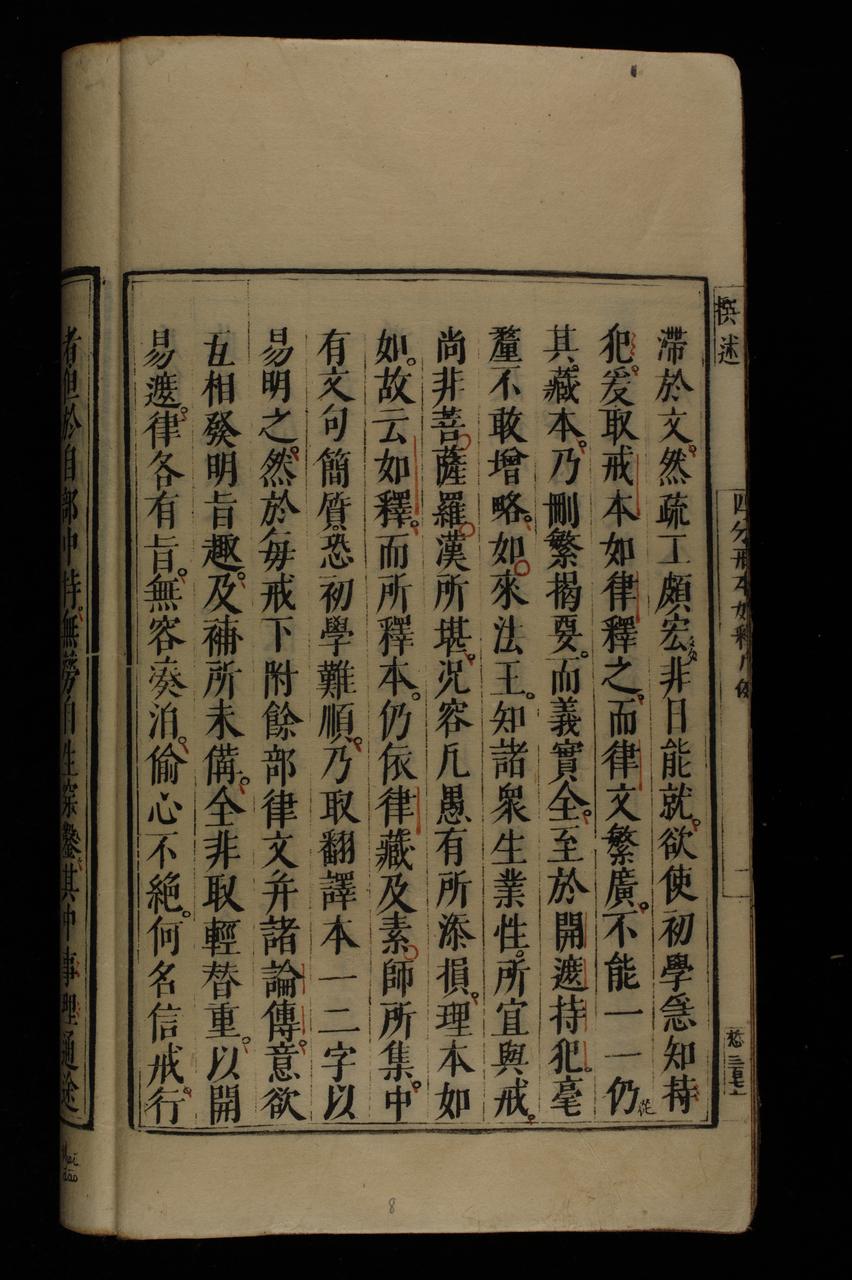 撰述
四分戒本如釋
滯於文。然疏工頗宏。非日能就。欲使初學急知持
犯。爰取戒本如律釋之。而律文繁廣。不能一一仍
其藏本。乃刪繁揭要。而義實全。至於開遮持犯。毫
釐不敢增略。如來法王。知諸衆生業性。所宜與戒。
尚非菩薩羅漢所堪。况容凡愚有所添損。理本如
如。故云如釋。而所釋本。仍依律藏及素師所集。中
有文句簡質。恐初學難順。乃取翻譯本一二字以
易明之。然於每戒下附餘部律文并諸論傳。意欲
互相發明旨趣。及補所未備。全非取輕替重。以開
易遮。律各有旨。無容湊泊。偷心不絕。何名信戒。行
者但於自部中持。無勞自生穿鑿。其中事理通途
8